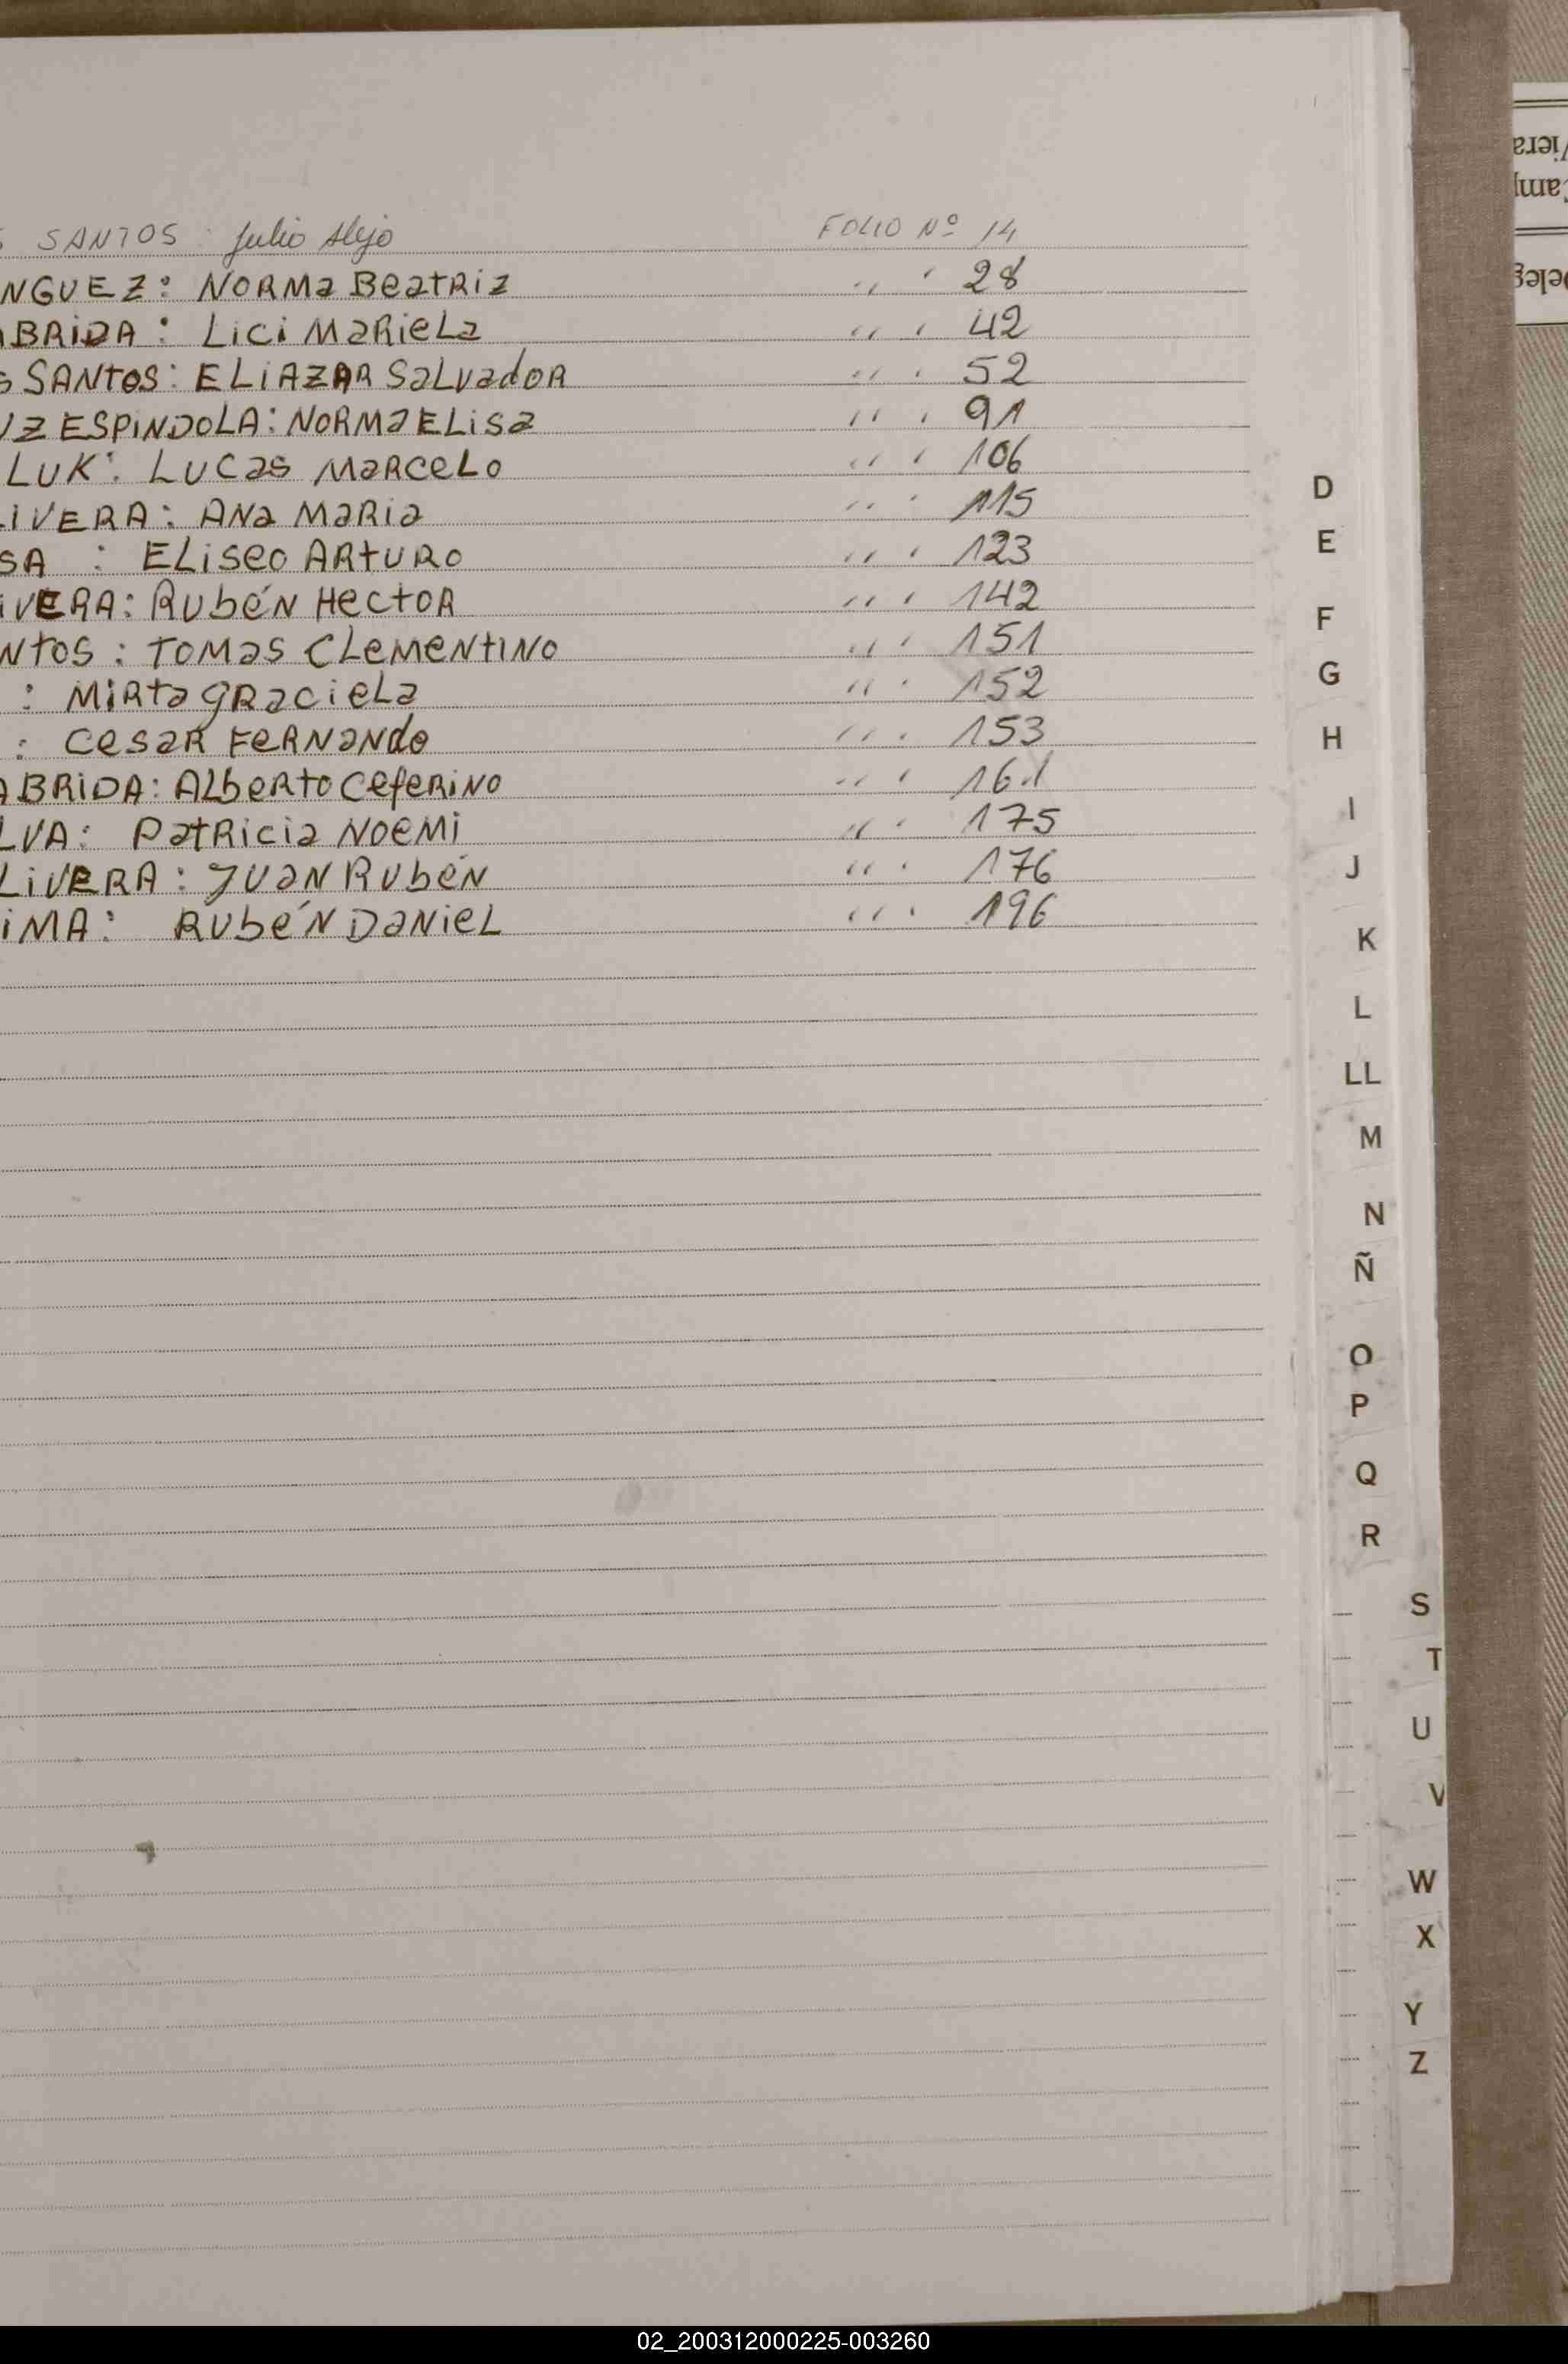 S SANTOS : Julio Alejo FOLIO Nº 14
NGUEZ: NORMA BEATRIZ " " 28
ABRIDA: LICI MARIELA " " 42
S SANTOS: ELIAZAR SALVADOR " " 52
UZ ESPINDOLA: NORMA ELISA " " 91
LUK: LUCAS MARCELO " " 106
LIVERA: ANA MARIA " " 115
SA : ELISEO ARTURO " " 123
IVERA: RUBÉN HECTOR " " 142
NTOS: TOMAS CLEMENTINO " " 151
: MIRTA GRACIELA " " 152
: CESAR FERNANDO " " 153
ABRIDA: ALBERTO CEFERINO " " 161
LVA: PATRICIA NOEMI " " 175
LIVERA: JUAN RUBÉN " " 176
IMA: RUBÉN DANIEL " " 196
D
E
F
G
H
I
J
K
L
LL
M
N
Ñ
O
P
Q
R
S
T
U
V
W
X
Y
Z
Viera
Camp
Deleg
02_200312000225-003260